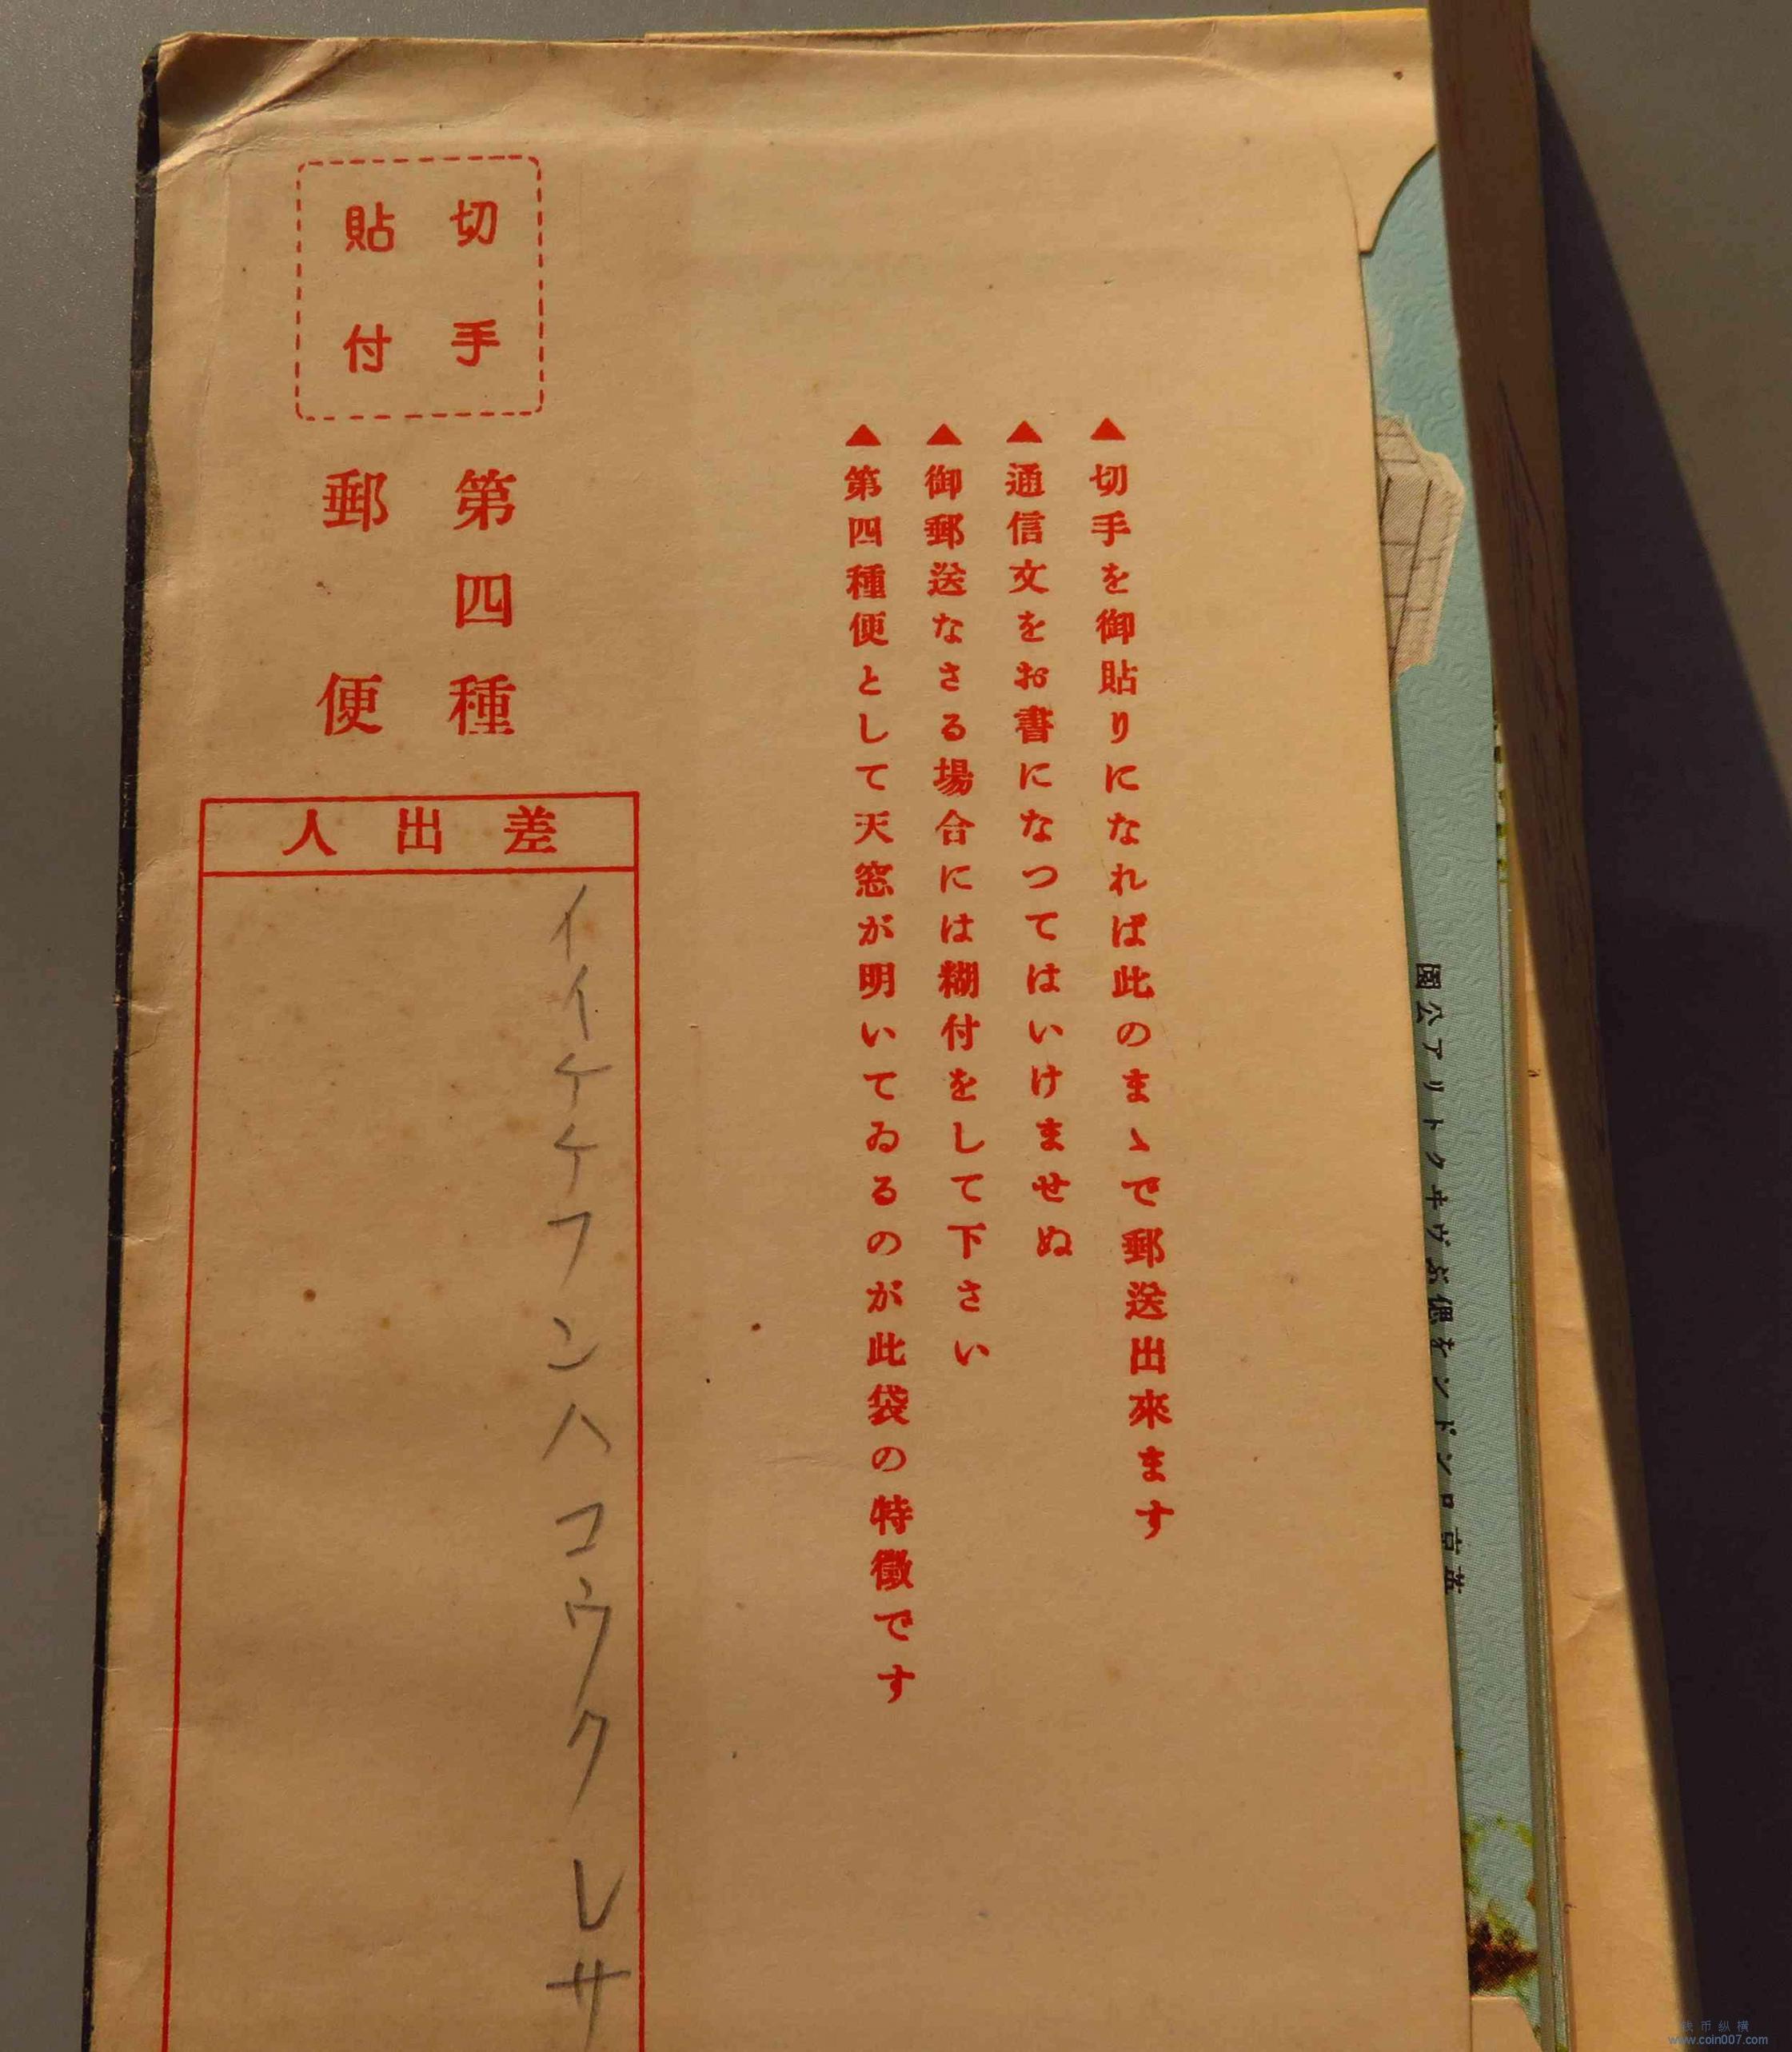 切手
貼付
第四種
郵便
差出人
イイケケフンハコウクレサ
▲切手を御貼りになれば此のまゝで郵送出來ます
▲通信文をお書になつてはいけませぬ
▲御郵送なさる場合には糊付をして下さい
▲第四種便として天窓が明いてゐるのが此袋の特徴です
英京ロンドンソを偲ぶヴヰクトリア公園
钱币纵横
www.coin007.com